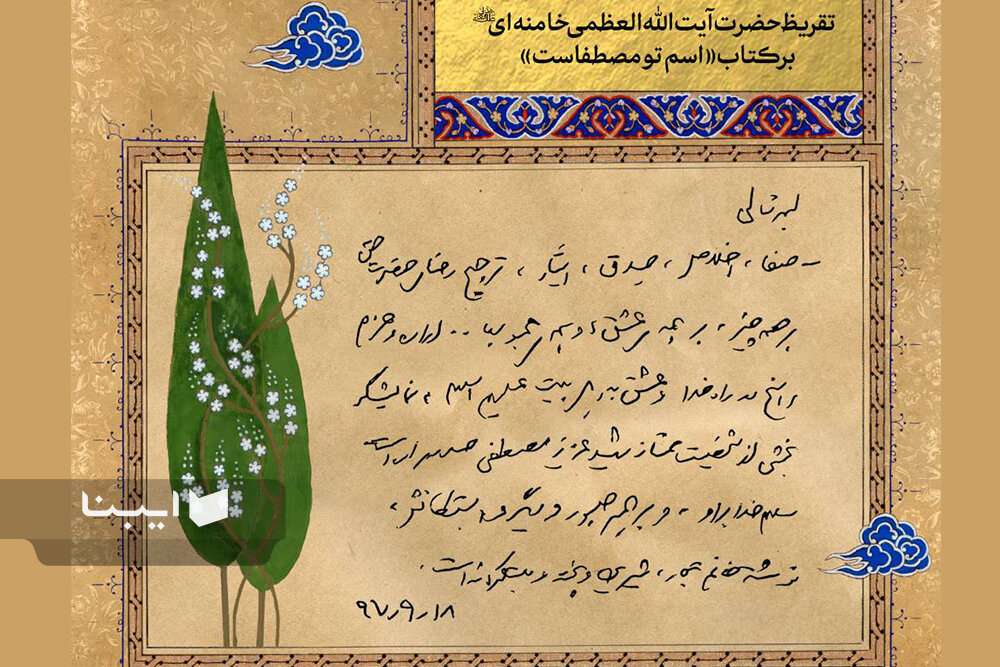 تقریظ حضرت آیت الله العظمی خامنه ای
بر کتاب «اسم تو مصطفاست»
بسمه تعالی
صفا، اخلاص، صدق، ایثار، ترجیح رضای حضرت حق
بر همه چیز، بر همه‌ی عشق‌ها و همه‌ی محبوب‌ها
راسخ در راه خدا و عشق به اهل بیت علیهم السلام، نمایشگر
بخشی از شخصیت ممتاز شهید عزیز مصطفی صدرزاده است
سلام خدا بر او، و بر همسر صبور و دیگر بستگانش،
نوشته خانم تجار، شیرین و پخته و مبتکرانه است.
۹۷/۹/۱۸
ایبنا